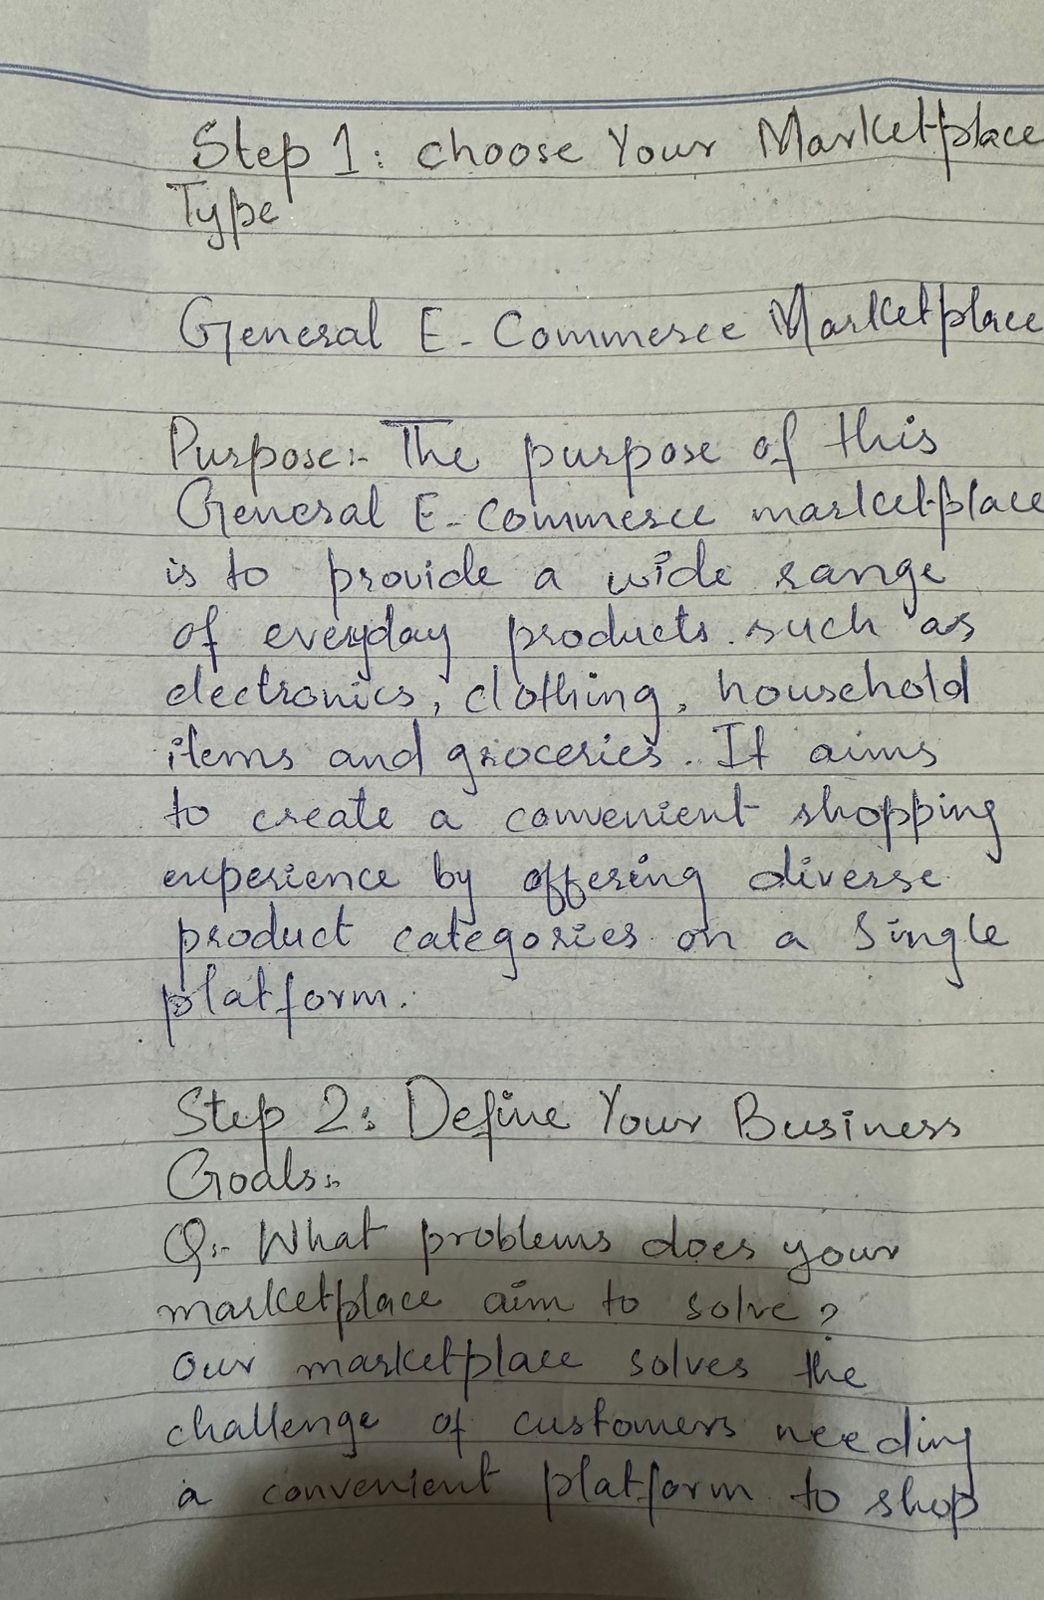 Step 1: choose Your Marketplace
Type
General E-Commerce Marketplace
Purpose:- The purpose of this
General E-Commerce marketplace
is to provide a wide range
of everyday products such as
electronics, clothing, household
items and groceries. It aims
to create a convenient shopping
experience by offering diverse
product categories on a single
platform.
Step 2: Define Your Business
Goals:-
Q:- What problems does your
marketplace aim to solve?
Our marketplace solves the
challenge of customers needing
a convenient platform to shop